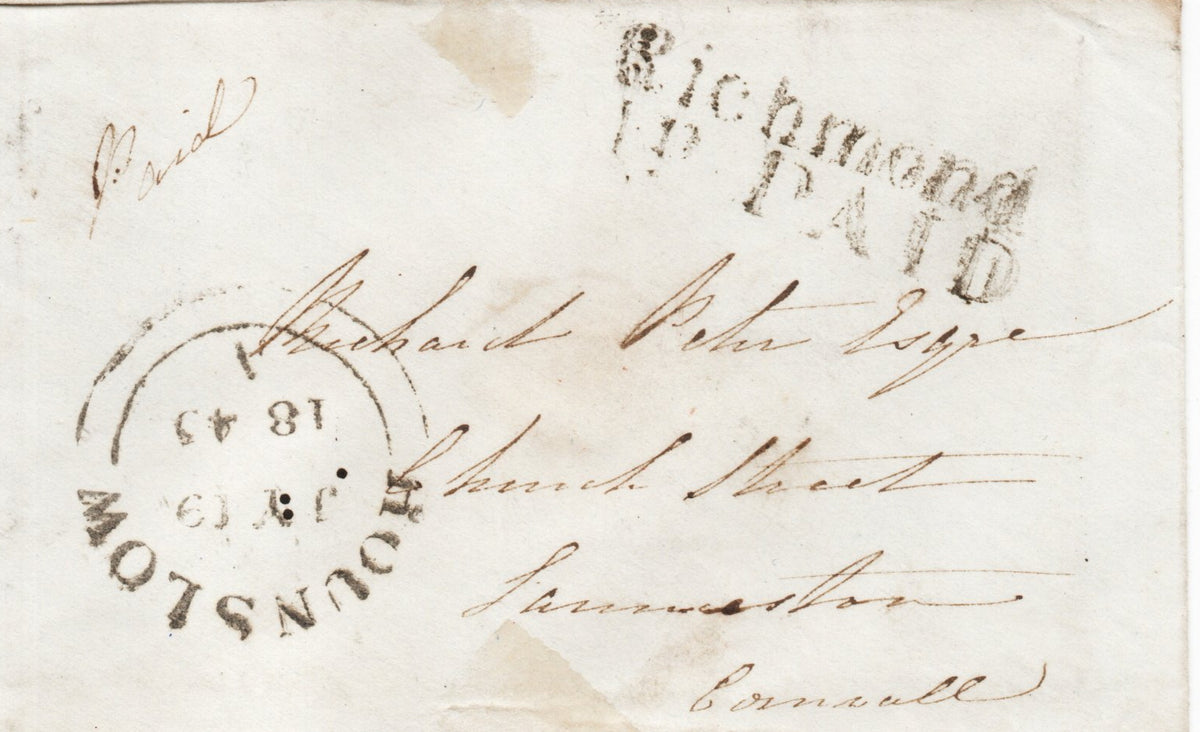 Paid
Richmond
1D PAID
Richard Peter Esqre
Church Street
Launceston
Cornwall
HOUNSLOW
JY 19
1845